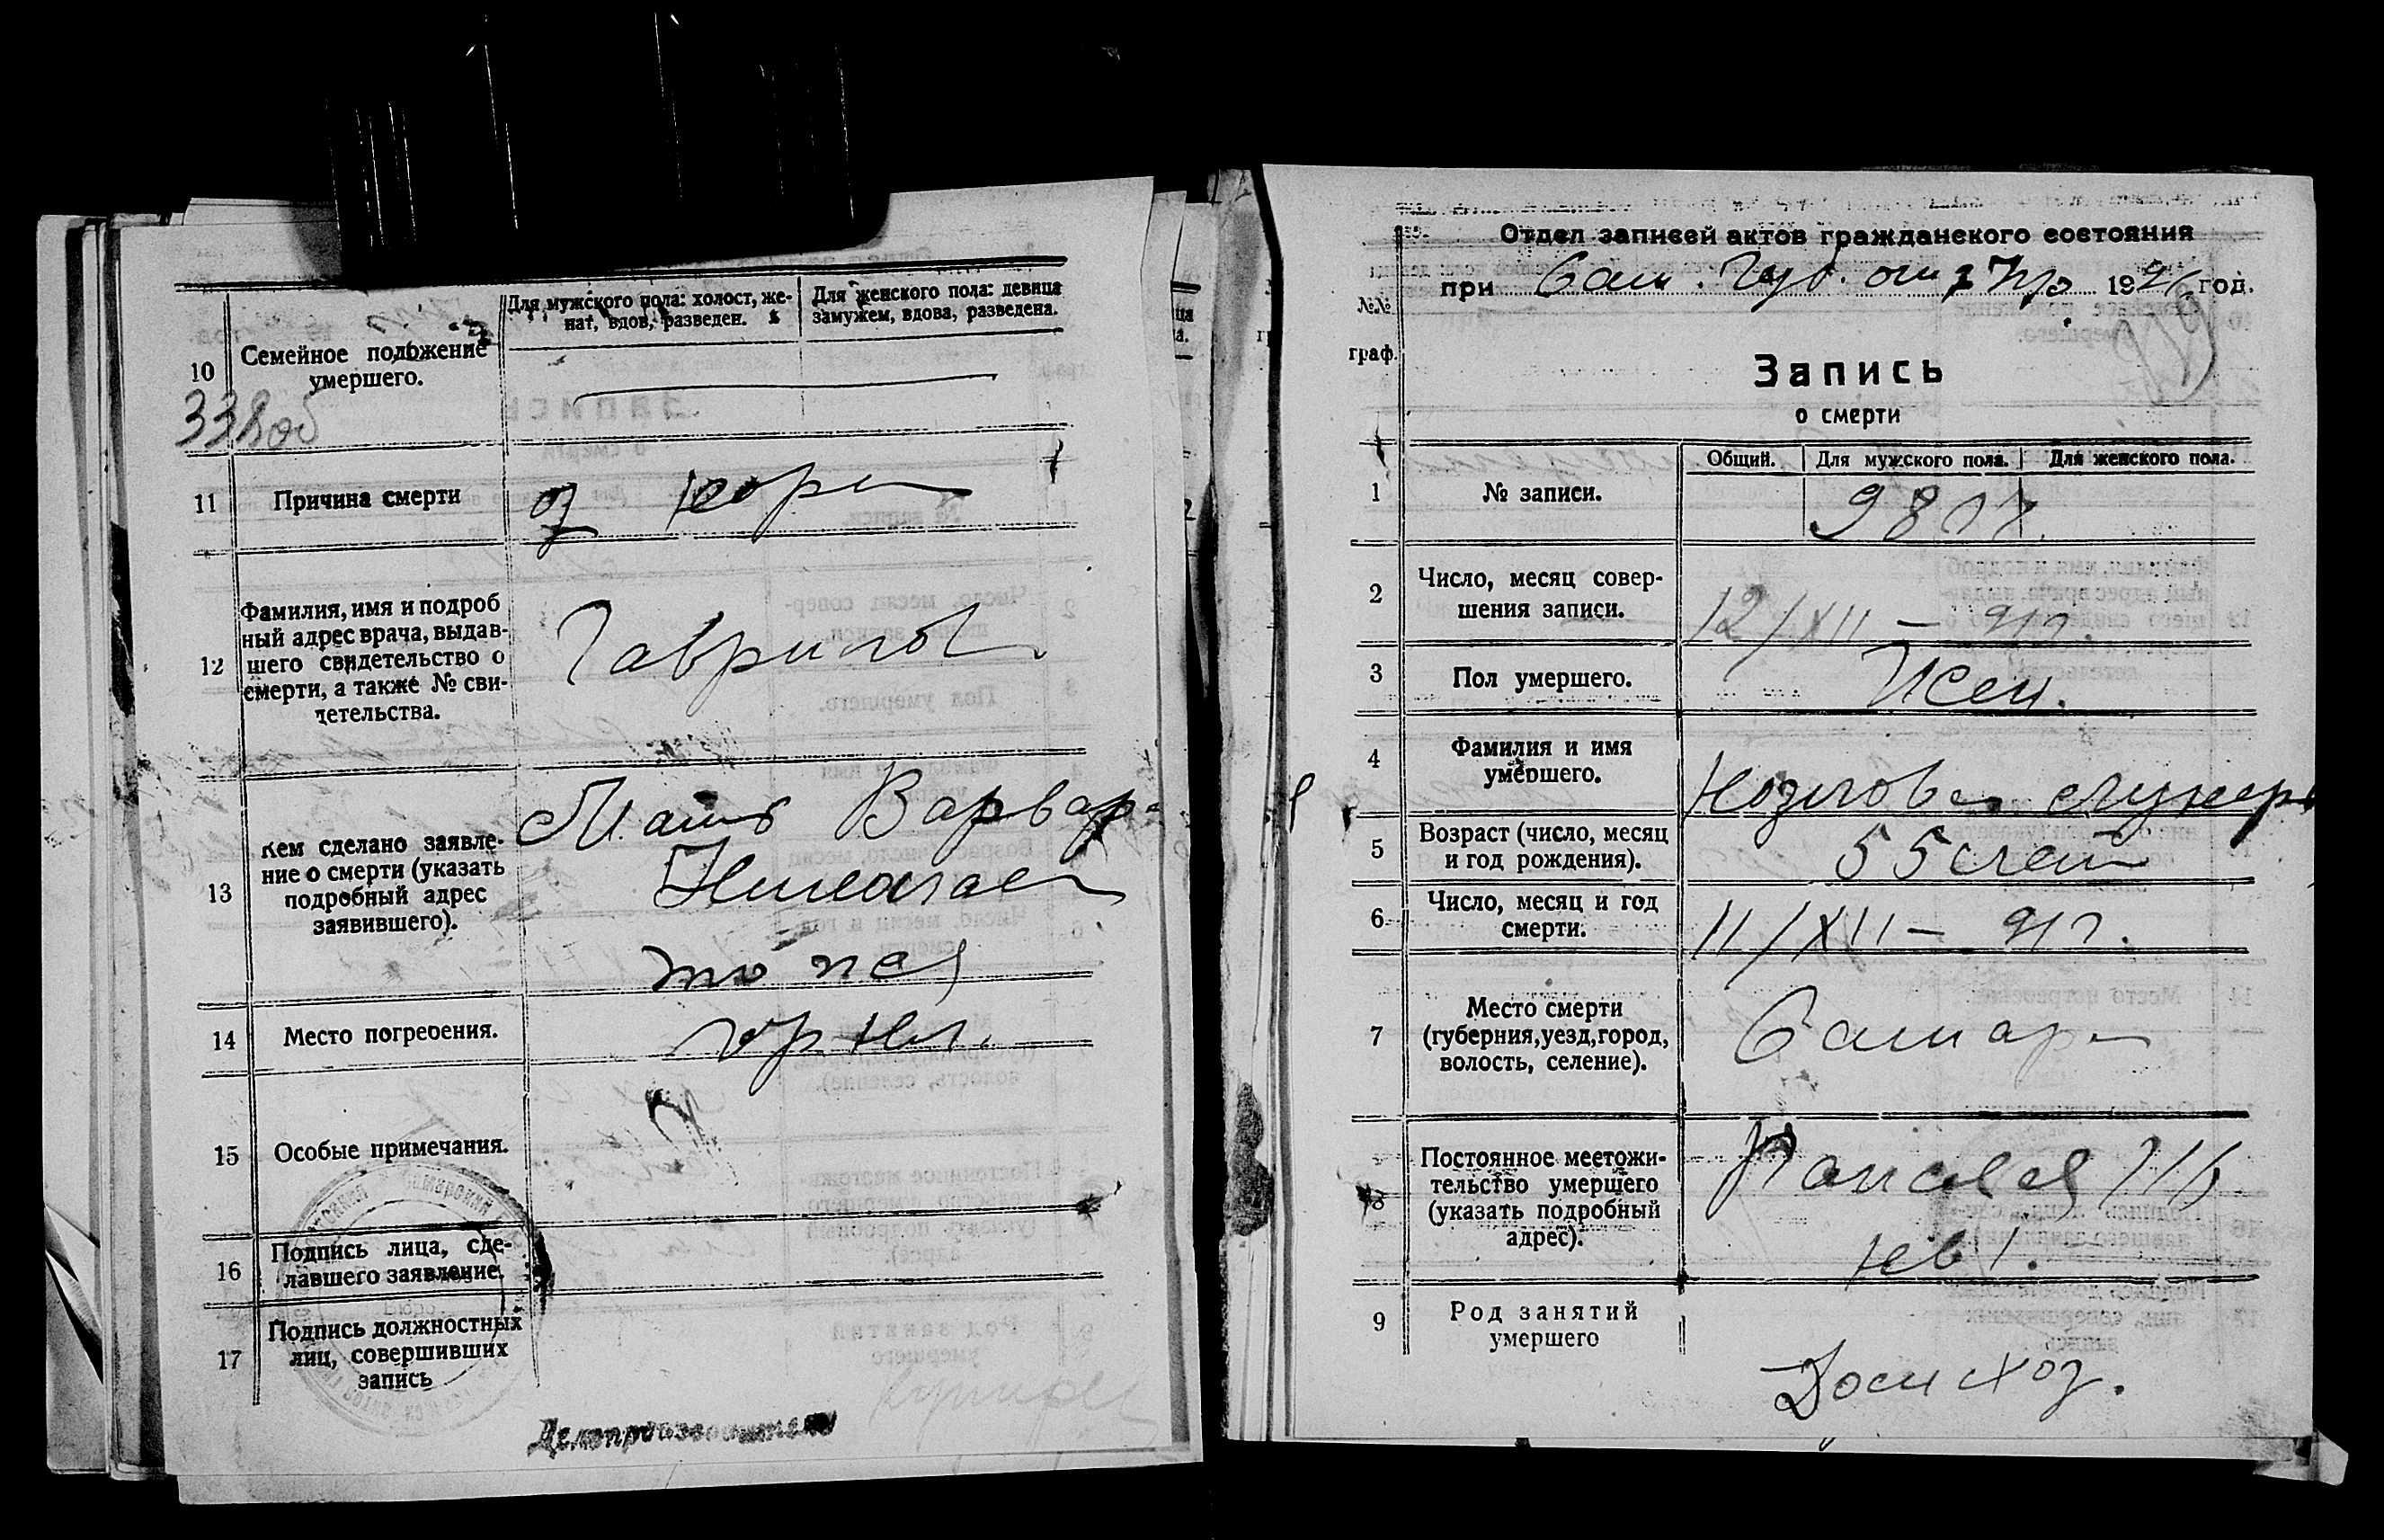 10
Семейное положение
умершего.
Для мужского пола: холост, же-
нат, вдов, разведен.
Для женского пола: девица
замужем, вдова, разведена.
11
Причина смерти
12
Фамилия, имя и подроб
ный адрес врача, выдав-
шего свидетельство о
смерти, а также № сви-
детельства.
Гаврилов
13
Кем сделано заявле-
ние о смерти (указать
подробный адрес
заявившего).
Мать Варвар
14
Место погребения.
15
Особые примечания.
16
Подпись лица, сде-
лавшего заявление.
17
Подпись должностных
лиц, совершивших
запись
Делопроизводитель
Отдел записей актов гражданского состояния
при Сам. Губ. 192 год.
№№
граф.
Запись
о смерти
Общий. Для мужского пола. Для женского пола.
1
№ записи.
2
Число, месяц совер-
шения записи.
12/XII – 21 г.
3
Пол умершего.
Жен.
4
Фамилия и имя
умершего.
Козлова
5
Возраст (число, месяц
и год рождения).
55 лет
6
Число, месяц и год
смерти.
11/XII – 21 г.
7
Место смерти
(губерния, уезд, город,
волость, селение).
Самара
8
Постоянное местожи-
тельство умершего
(указать подробный
адрес).
кв 1.
9
Род занятий
умершего
Дом хоз.